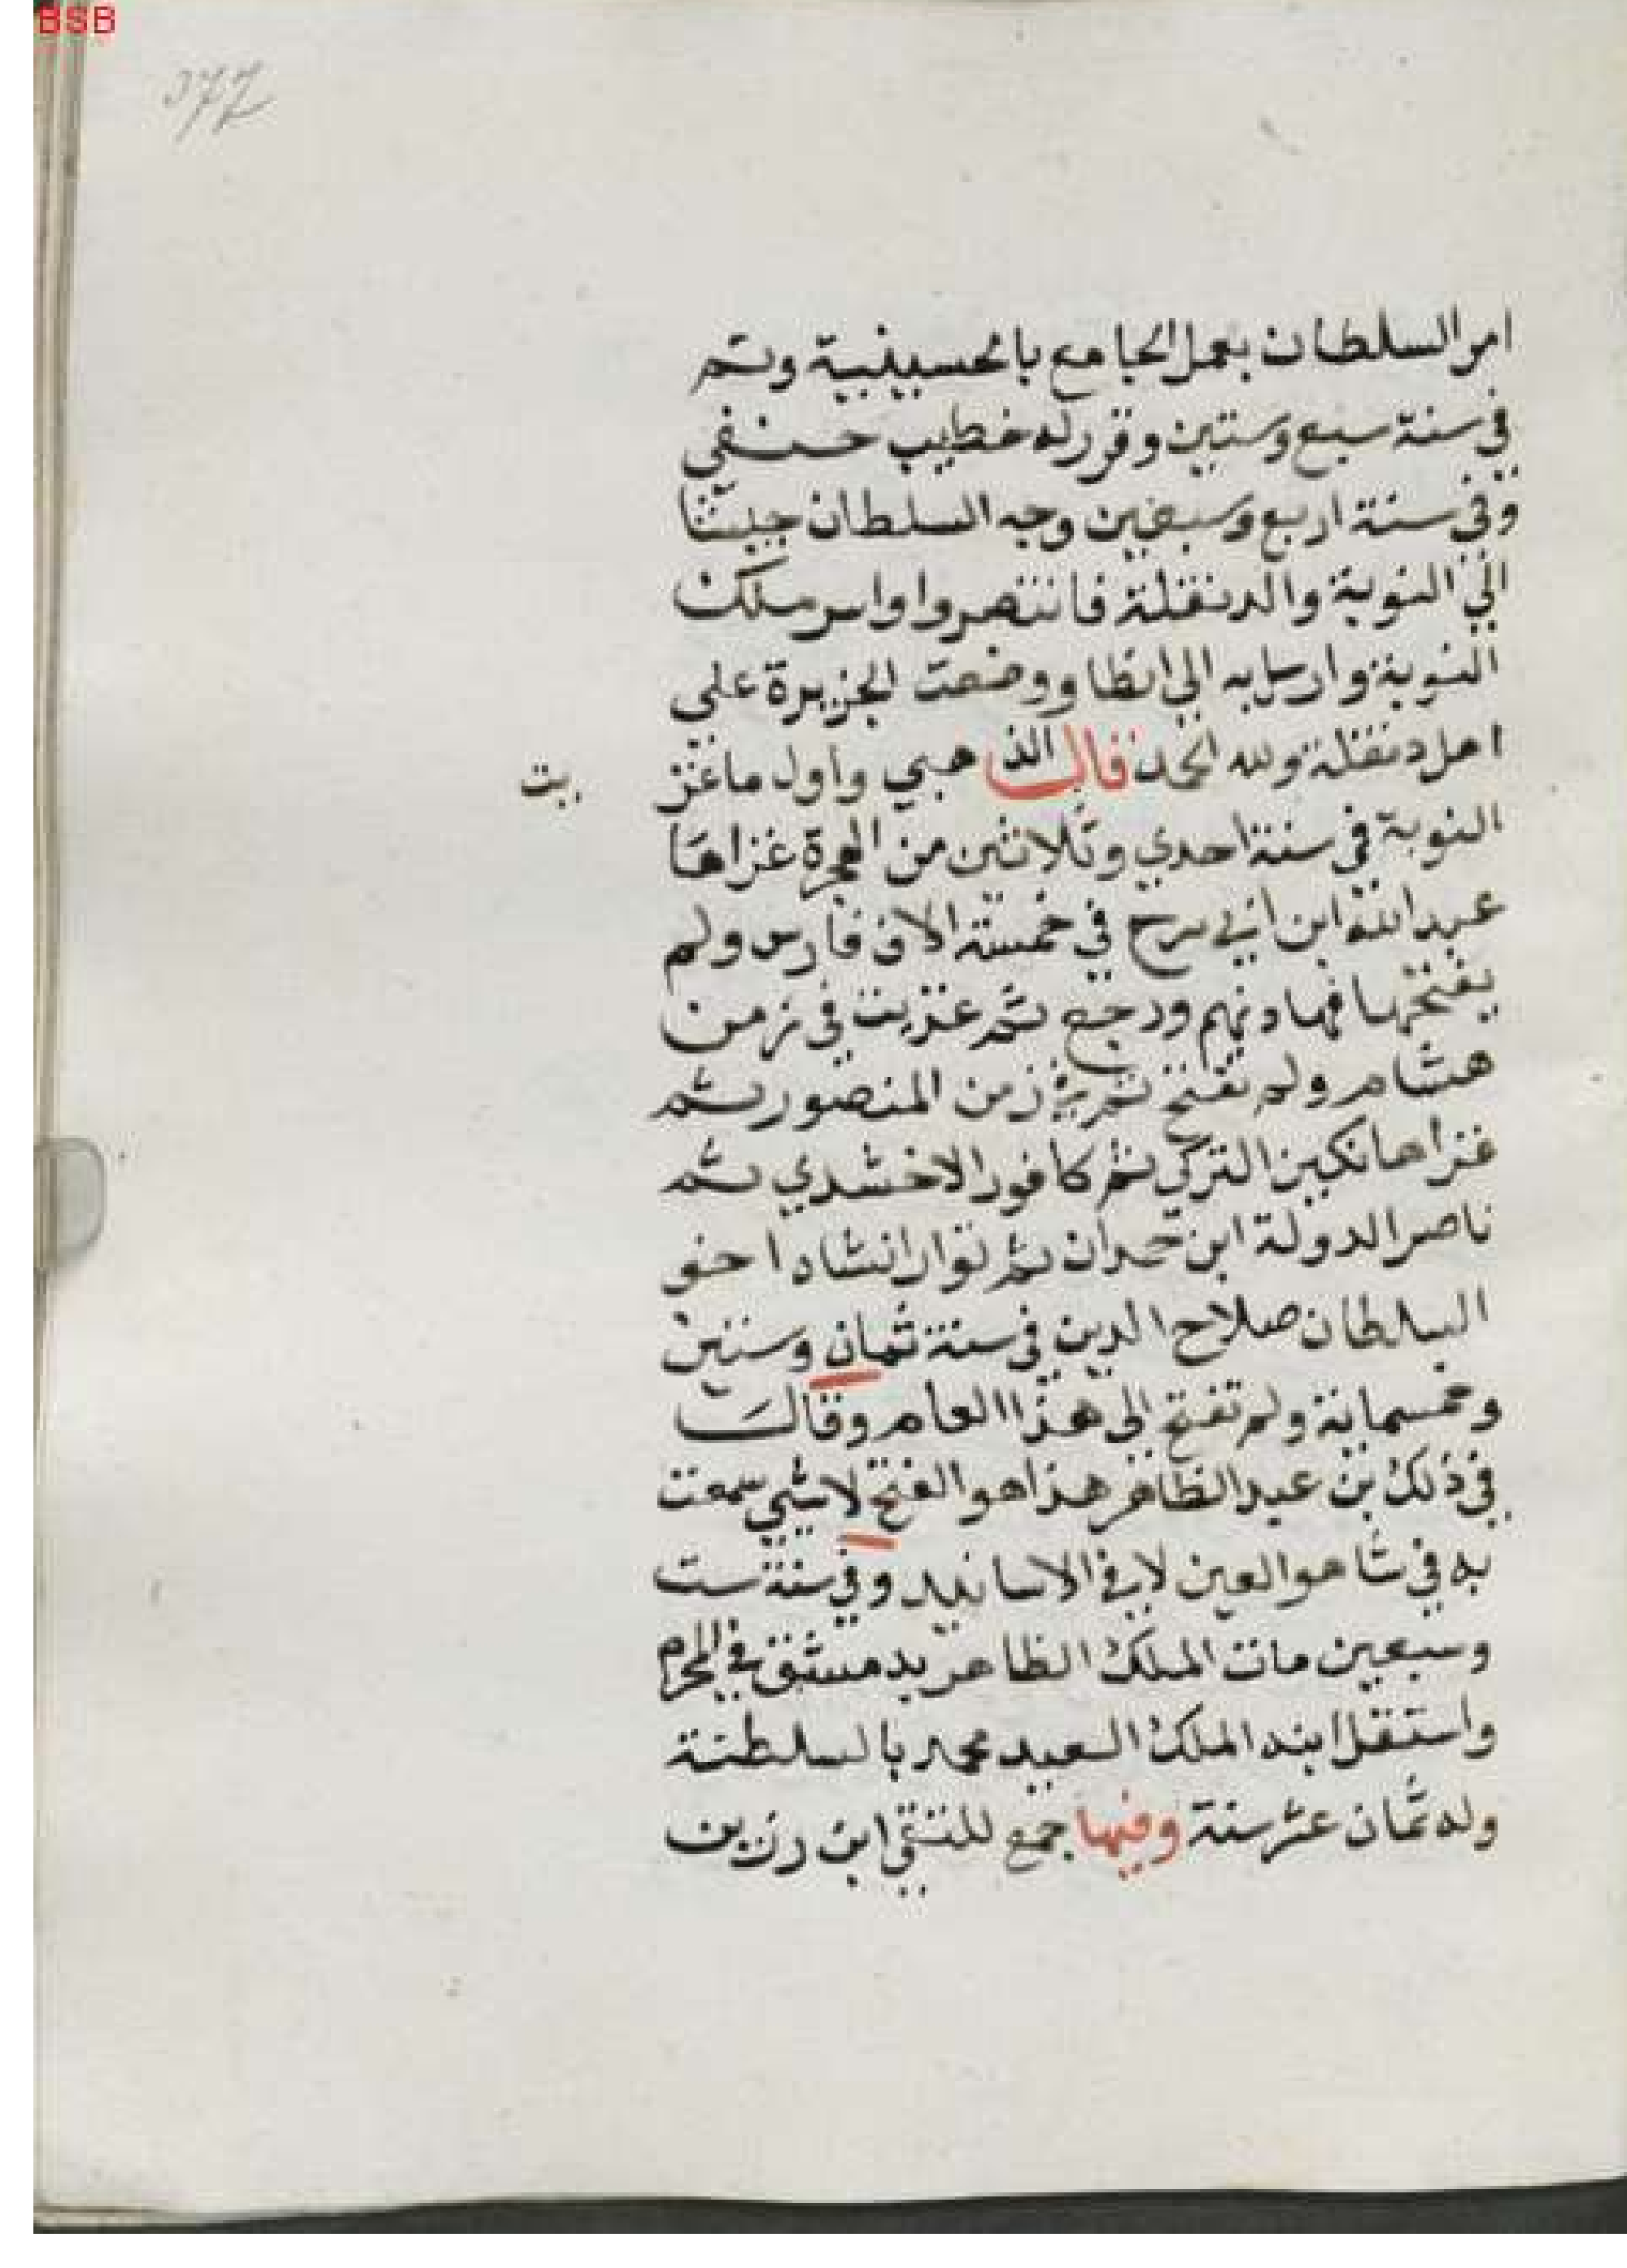 BSB
377
امر السلطان بعمل الجامع بالحسينية وتم
في سنة سبع وستين وقرر له خطيب حنفي
وفي سنة اربع وسبعين وجه السلطان جيشا
الي النوبة والدنقلة فانتصروا واسر ملك
النوبة وارسل به الي الظا ووضعت الجزيرة علي
اهل دنقلة ولله الحمد قال الذهبي واول ما غز
يت
النوبة في سنة احدي وثلاثين من الهجرة غزاها
عبد الله ابن ابي سرح في خمسة الاف فارس ولم
يفتحها فهادنهم ورجع ثم غزيت في زمن
هشام ولم تفتح ثم في زمن المنصور ثم
غزاها تكين التركي ثم كافور الاخشدي ثم
ناصر الدولة ابن حمدان ثم توار انشاد اخو
السلطان صلاح الدين في سنة ثمان وستين
وخمسماية ولم تفتح الي هذا العام وقال
في ذلك بن عبد الظاهر هذا هو الفتح لا شي سمعت
به في شاهد العين لا في الاسانيد وفي سنة ست
وسبعين مات الملك الظاهر بدمشق في المحرم
واستقل ابنه الملك السعيد محمد بالسلطنة
وله ثمان عشر سنة وفيها جمع للتقي ابن رزين